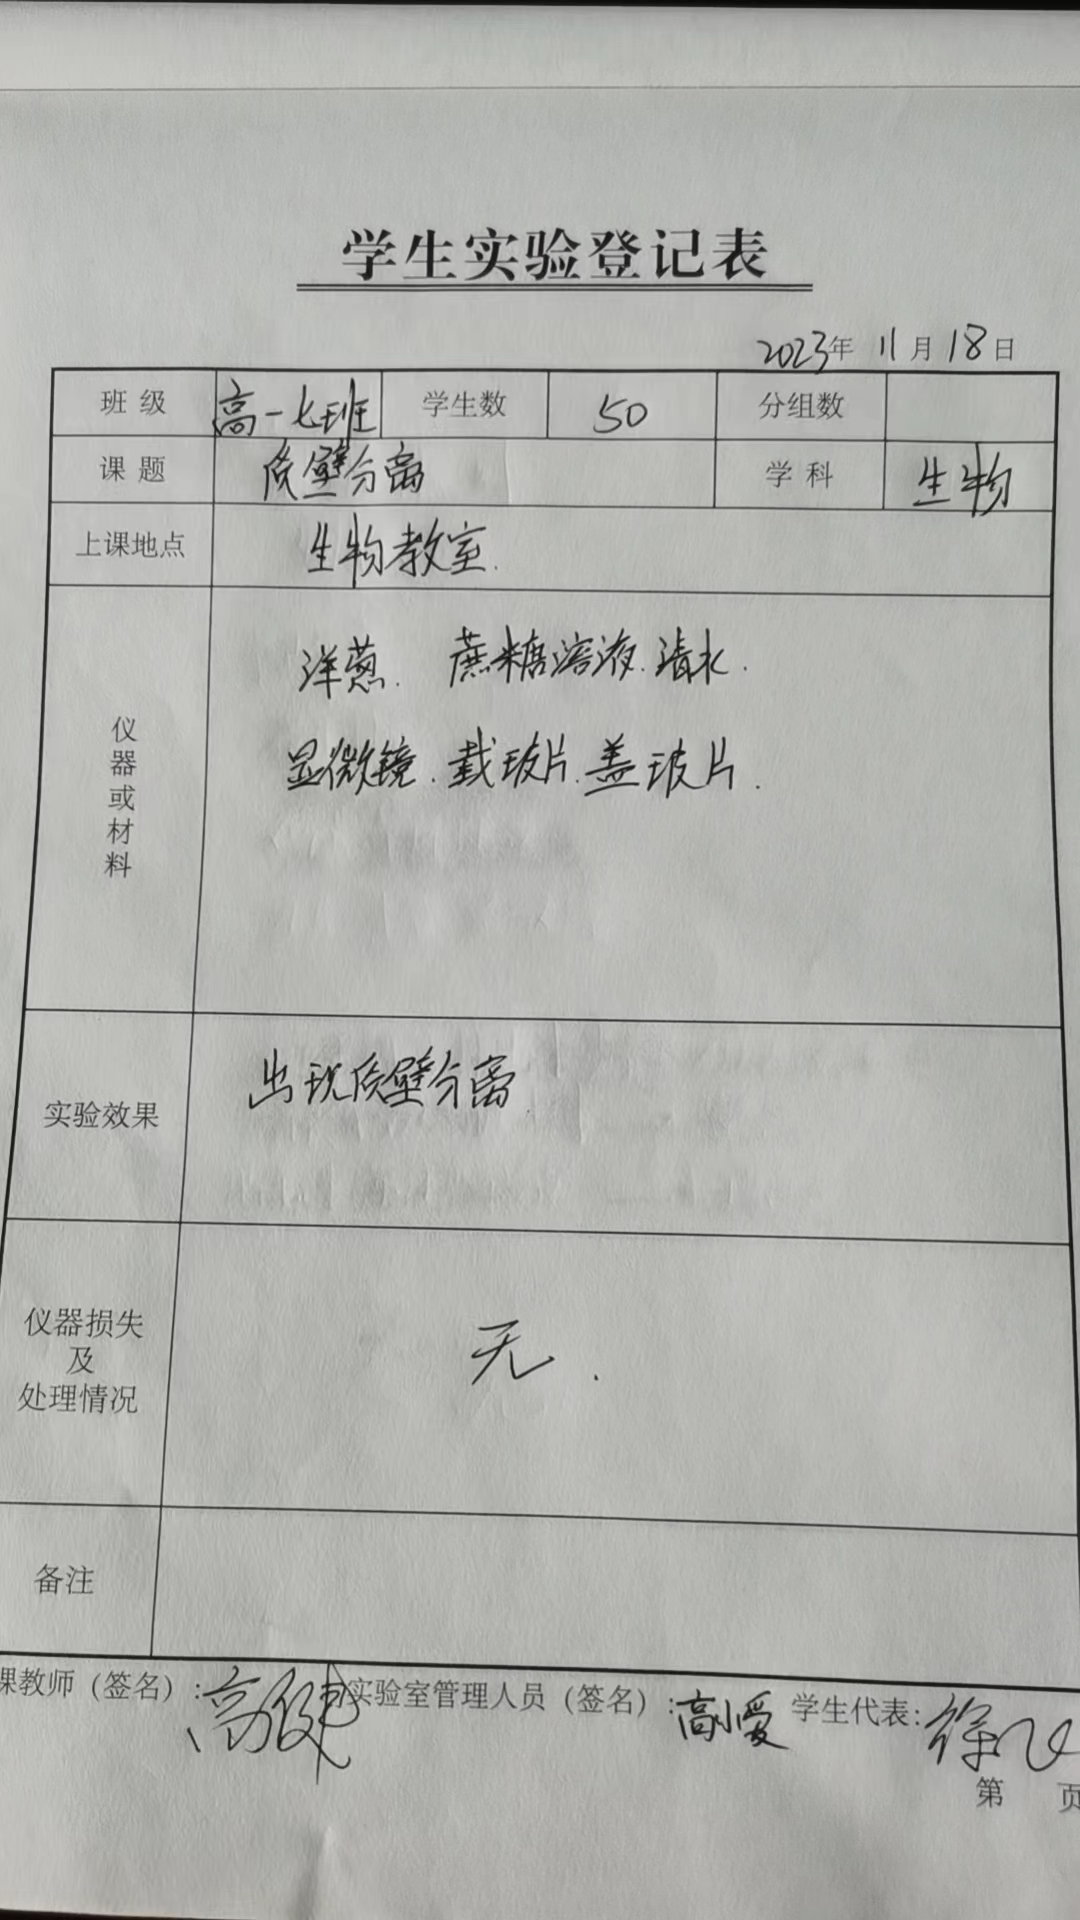 学生实验登记表
2023年 11月18日
班级 高一七班 学生数 50 分组数
课题 质壁分离 学科 生物
上课地点 生物教室.
仪器或材料
洋葱. 蔗糖溶液.清水.
显微镜.载玻片.盖玻片.
实验效果 出现质壁分离
仪器损失
及
处理情况
无.
备注
课教师（签名）: 实验室管理人员（签名）:高小爱 学生代表:徐
第 页